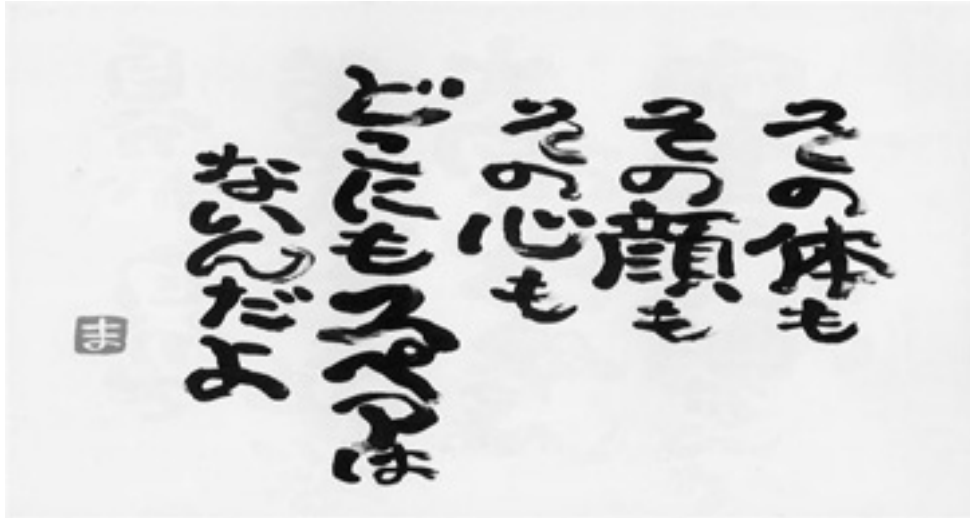 その体も
その顔も
その心も
どこにもスペアは
ないんだよ
ま